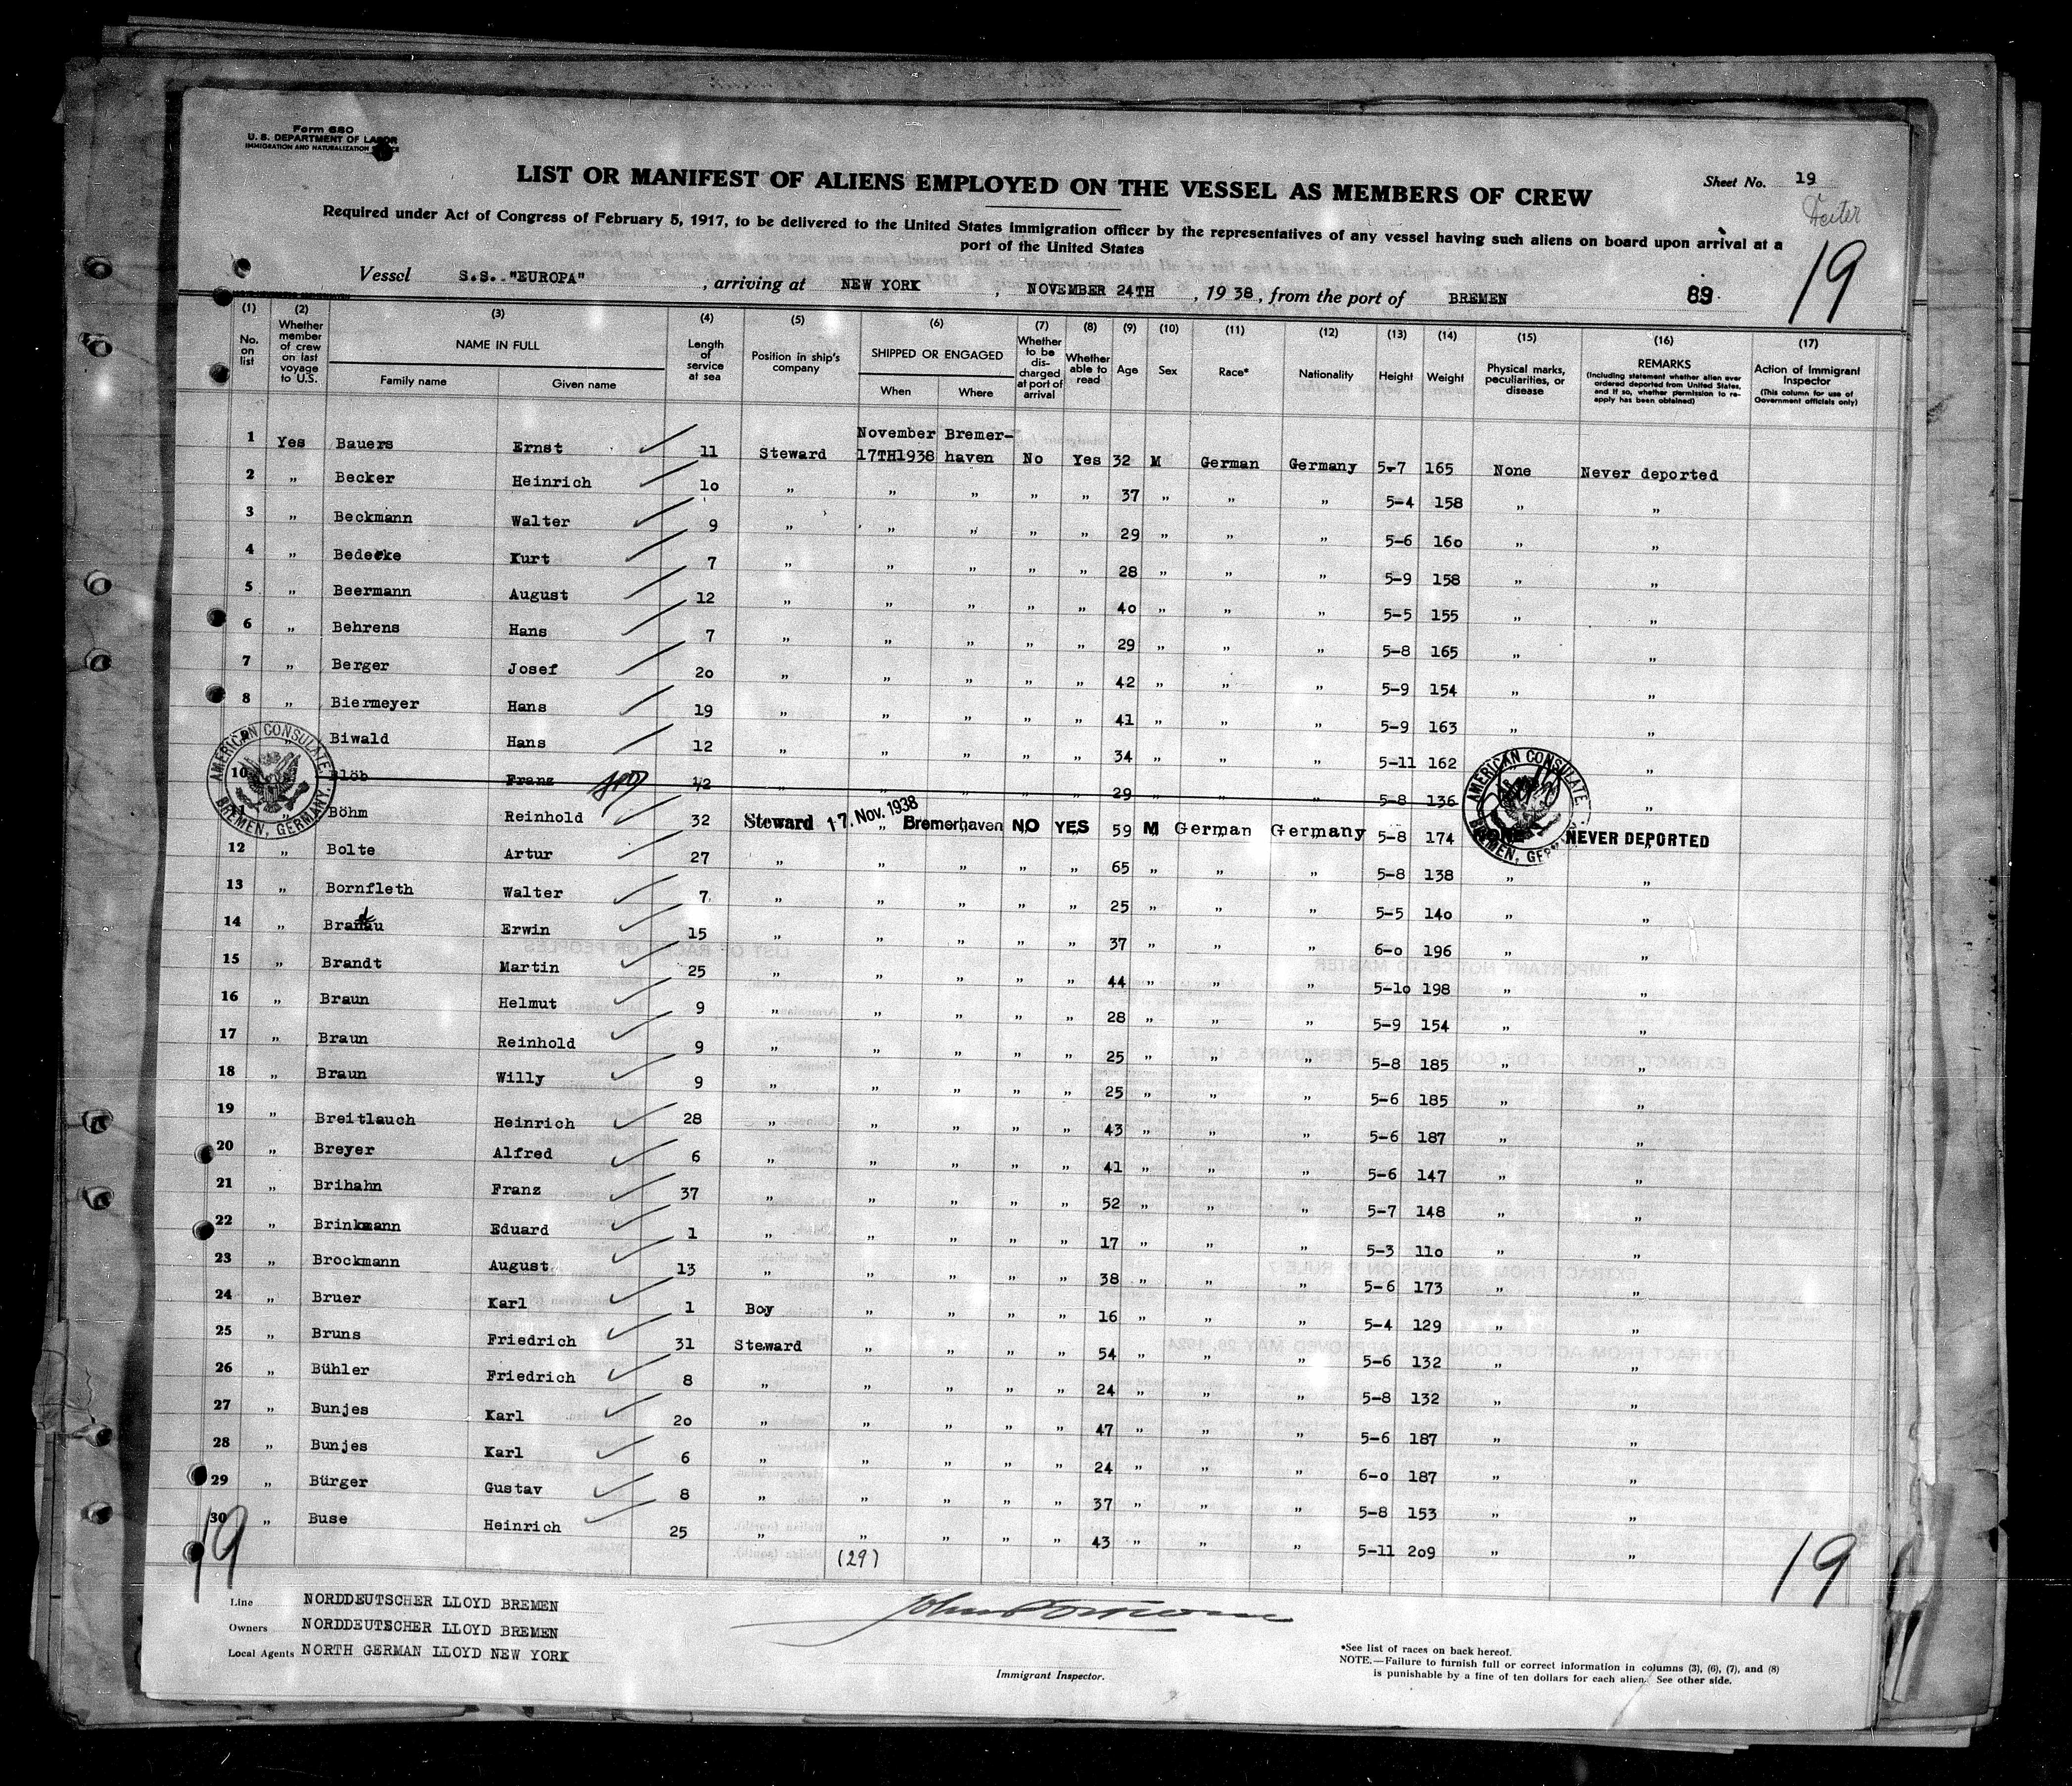 Form 680
U. S. DEPARTMENT OF LABOR
IMMIGRATION AND NATURALIZATION
LIST OR MANIFEST OF ALIENS EMPLOYED ON THE VESSEL AS MEMBERS OF CREW
Sheet No. 19
Required under Act of Congress of February 5, 1917, to be delivered to the United States Immigration officer by the representatives of any vessel having such aliens on board upon arrival at a
port of the United States
19
Vessel S.S. "EUROPA", arriving at NEW YORK, NOVEMBER 24TH, 1938, from the port of BREMEN 89
(1) No. on list (2) Whether member of crew on last voyage to U.S. (3) NAME IN FULL Family name Given name (4) Length of service at sea (5) Position in ship's company (6) SHIPPED OR ENGAGED When Where (7) Whether to be discharged at port of arrival (8) Whether able to read (9) Age (10) Sex (11) Race* (12) Nationality (13) Height (14) Weight (15) Physical marks, peculiarities, or disease (16) REMARKS (Including statement whether alien ever ordered deported from United States, and if so, whether permission to reapply has been obtained) (17) Action of Immigrant Inspector (This column for use of Government officials only)
1 Yes Bauers Ernst 11 Steward November 17TH1938 Bremer-haven No Yes 32 M German Germany 5-7 165 None Never deported
2 " Becker Heinrich 10 " " " " " 37 " " " 5-4 158 " "
3 " Beckmann Walter 9 " " " " " 29 " " " 5-6 160 " "
4 " Bedecke Kurt 7 " " " " " 28 " " " 5-9 158 " "
5 " Beermann August 12 " " " " " 40 " " " 5-5 155 " "
6 " Behrens Hans 7 " " " " " 29 " " " 5-8 165 " "
7 " Berger Josef 20 " " " " " 42 " " " 5-9 154 " "
8 " Biermeyer Hans 19 " " " " " 41 " " " 5-9 163 " "
" Biwald Hans 12 " " " " " 34 " " " 5-11 162 "
10 Blöb Franz 12 " " " " " 29 " " " 5-8 136 "
" Böhm Reinhold 32 Steward 17. Nov. 1938 " Bremerhaven NO YES 59 M German Germany 5-8 174 NEVER DEPORTED
AMERICAN CONSULATE, BREMEN, GERMANY.
AMERICAN CONSULATE BREMEN, GERMANY.
12 " Bolte Artur 27 " " " " " 65 " " " 5-8 138 " "
13 " Bornfleth Walter 7 " " " " " 25 " " " 5-5 140 " "
14 " Brandau Erwin 15 " " " " " 37 " " " 6-0 196 " "
15 " Brandt Martin 25 " " " " " 44 " " " 5-10 198 " "
16 " Braun Helmut 9 " " " " " 28 " " " 5-9 154 " "
17 " Braun Reinhold 9 " " " " " 25 " " " 5-8 185 " "
18 " Braun Willy 9 " " " " " 25 " " " 5-6 185 " "
19 " Breitlauch Heinrich 28 " " " " " 43 " " " 5-6 187 " "
20 " Breyer Alfred 6 " " " " " 41 " " " 5-6 147 " "
21 " Brihahn Franz 37 " " " " " 52 " " " 5-7 148 " "
22 " Brinkmann Eduard 1 " " " " " 17 " " " 5-3 110 " "
23 " Brockmann August 13 " " " " " 38 " " " 5-6 173 " "
24 " Bruer Karl 1 Boy " " " " 16 " " " 5-4 129 " "
25 " Bruns Friedrich 31 Steward " " " " 54 " " " 5-6 132 " "
26 " Bühler Friedrich 8 " " " " " 24 " " " 5-8 132 " "
27 " Bunjes Karl 20 " " " " " 47 " " " 5-6 187 " "
28 " Bunjes Karl 6 " " " " " 24 " " " 6-0 187 " "
29 " Bürger Gustav 8 " " " " " 37 " " " 5-8 153 " "
30 " Buse Heinrich 25 " " " " " 43 " " " 5-11 209 " "
19 (29) 19
Line NORDDEUTSCHER LLOYD BREMEN
Owners NORDDEUTSCHER LLOYD BREMEN
Local Agents NORTH GERMAN LLOYD NEW YORK
Immigrant Inspector.
*See list of races on back hereof.
NOTE.—Failure to furnish full or correct information in columns (3), (6), (7), and (8)
is punishable by a fine of ten dollars for each alien. See other side.